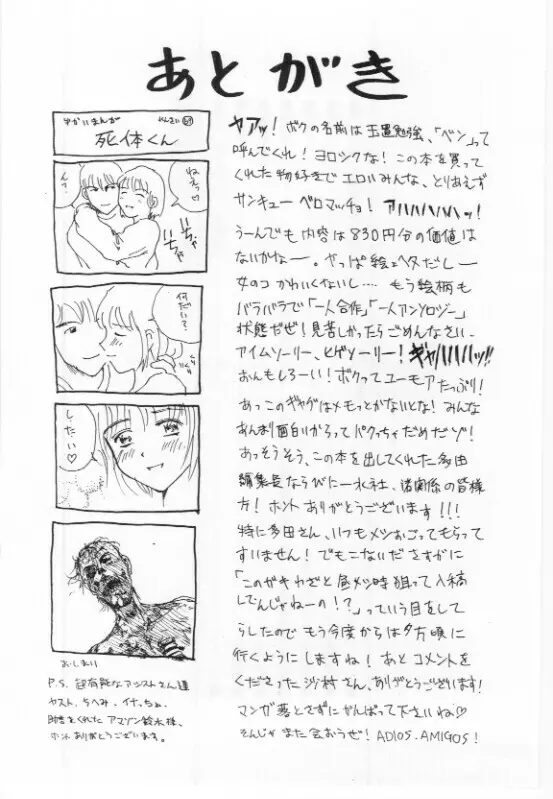 あとがき
ゆかいまんが
死体くん
ねぇ♡
ん?
いちゃ
いちゃ
何だい?
したい♡
おしまい
P.S. 超有能なアシストさん達
ヤスト、ちへみ、イナっちょ、
助けてくれた アマゾン鈴木様、
ホント ありがとうございます。
ヤアッ! ボクの名前は 玉置勉強、「ベン」って
呼んでくれ! ヨロシクな! この本を買って
くれた物好きで エロいみんな、とりあえず
サンキュー ベロマッチョ! アハハハハハッ!
うーんでも内容は 830円分の価値は
ないかなー。やっぱ絵ェヘタだしー
女のコ かわいくないし…… もう絵柄も
バラバラで「一人合作」「一人アンソロジー」
状態だぜ! 見苦しかったらごめんなさい。
アイムソーリー、ヒゲソーリー! ギャハハハハッ!!
おんもしろーい! ボクってユーモアたっぷり!
あっこのギャグはメモっとかないとな! みんな
あんまり面白いからってパクっちゃだめだゾ!
あっそうそう、この本を出してくれた多田
編集長ならびに一水社、諸関係の皆様
方! ホント ありがとうございます!!!
特に多田さん、いつもメシおごってもらって
すいません! でもこないださすがに
「このガキ わざと昼メシ時狙って入稿
してんじゃねーの!?」っていう目をして
らしたので もう今度からは夕方頃に
行くようにしますね! あとコメントを
くださった沙村さん、ありがとうございます!
マンガ落とさずにがんばって下さいね♡
そんじゃ また会おうぜ! ADIOS.AMIGOS!